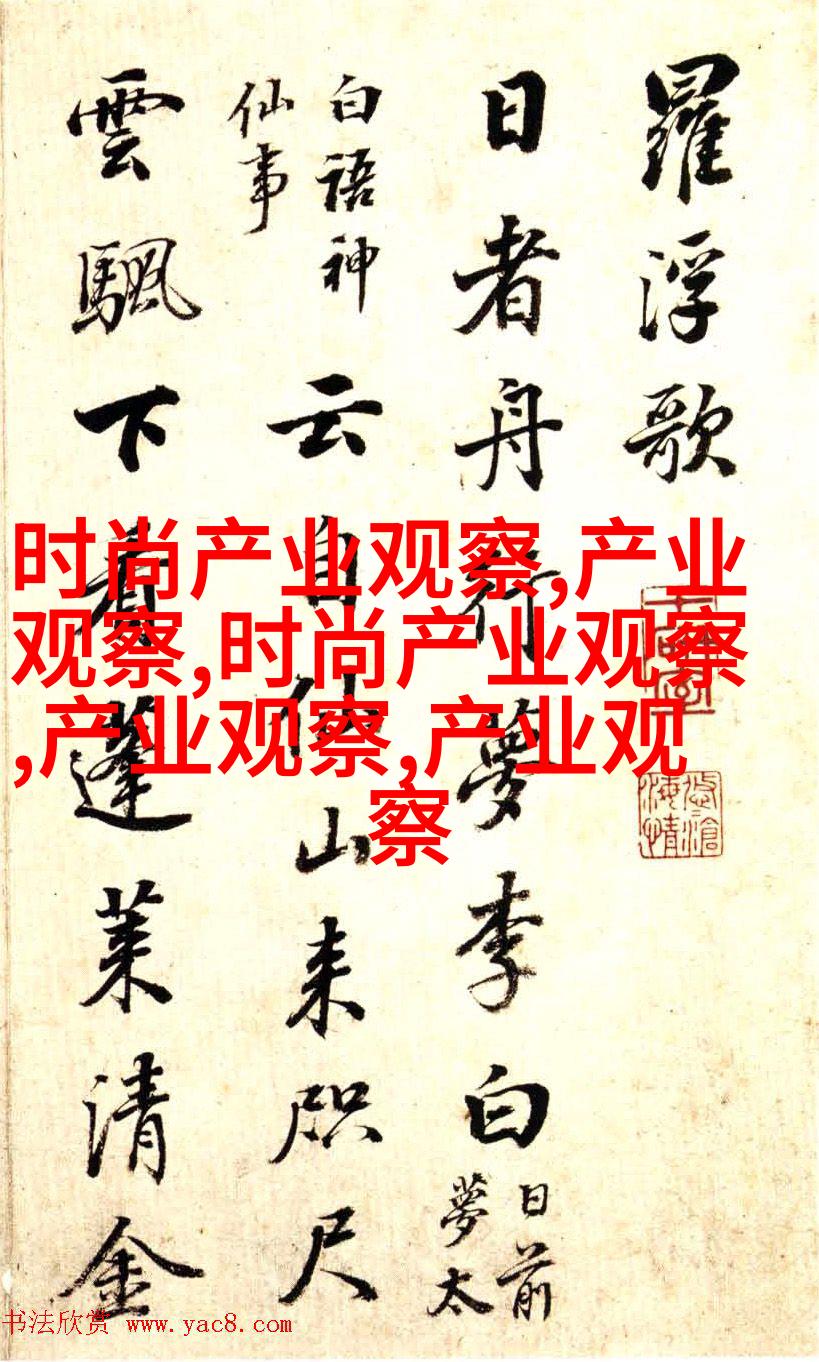 羅浮歌
日者舟行夢李白
日前
夢太
白語神
仙事
云自仙山来咫尺
雲颿下看蓬莱清金
时尚产业观察,产业
观察,时尚产业观察
,产业观察,产业观
察
书法欣赏 www.yac8.com